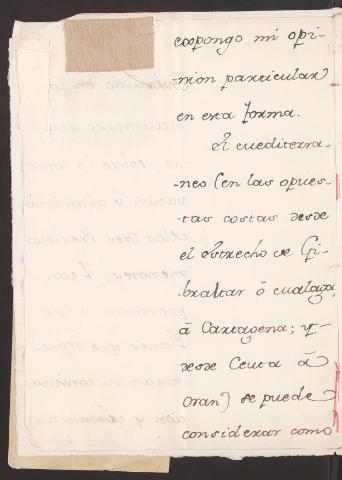 expongo mi opi-
nion particular
en esta forma.
El Mediterra-
-neo (en las opues-
-tas costas desde
el estrecho de Gi-
braltar ó Malaga,
á Cartagena; y
desde Ceuta á
Oran) se puede
considerar como